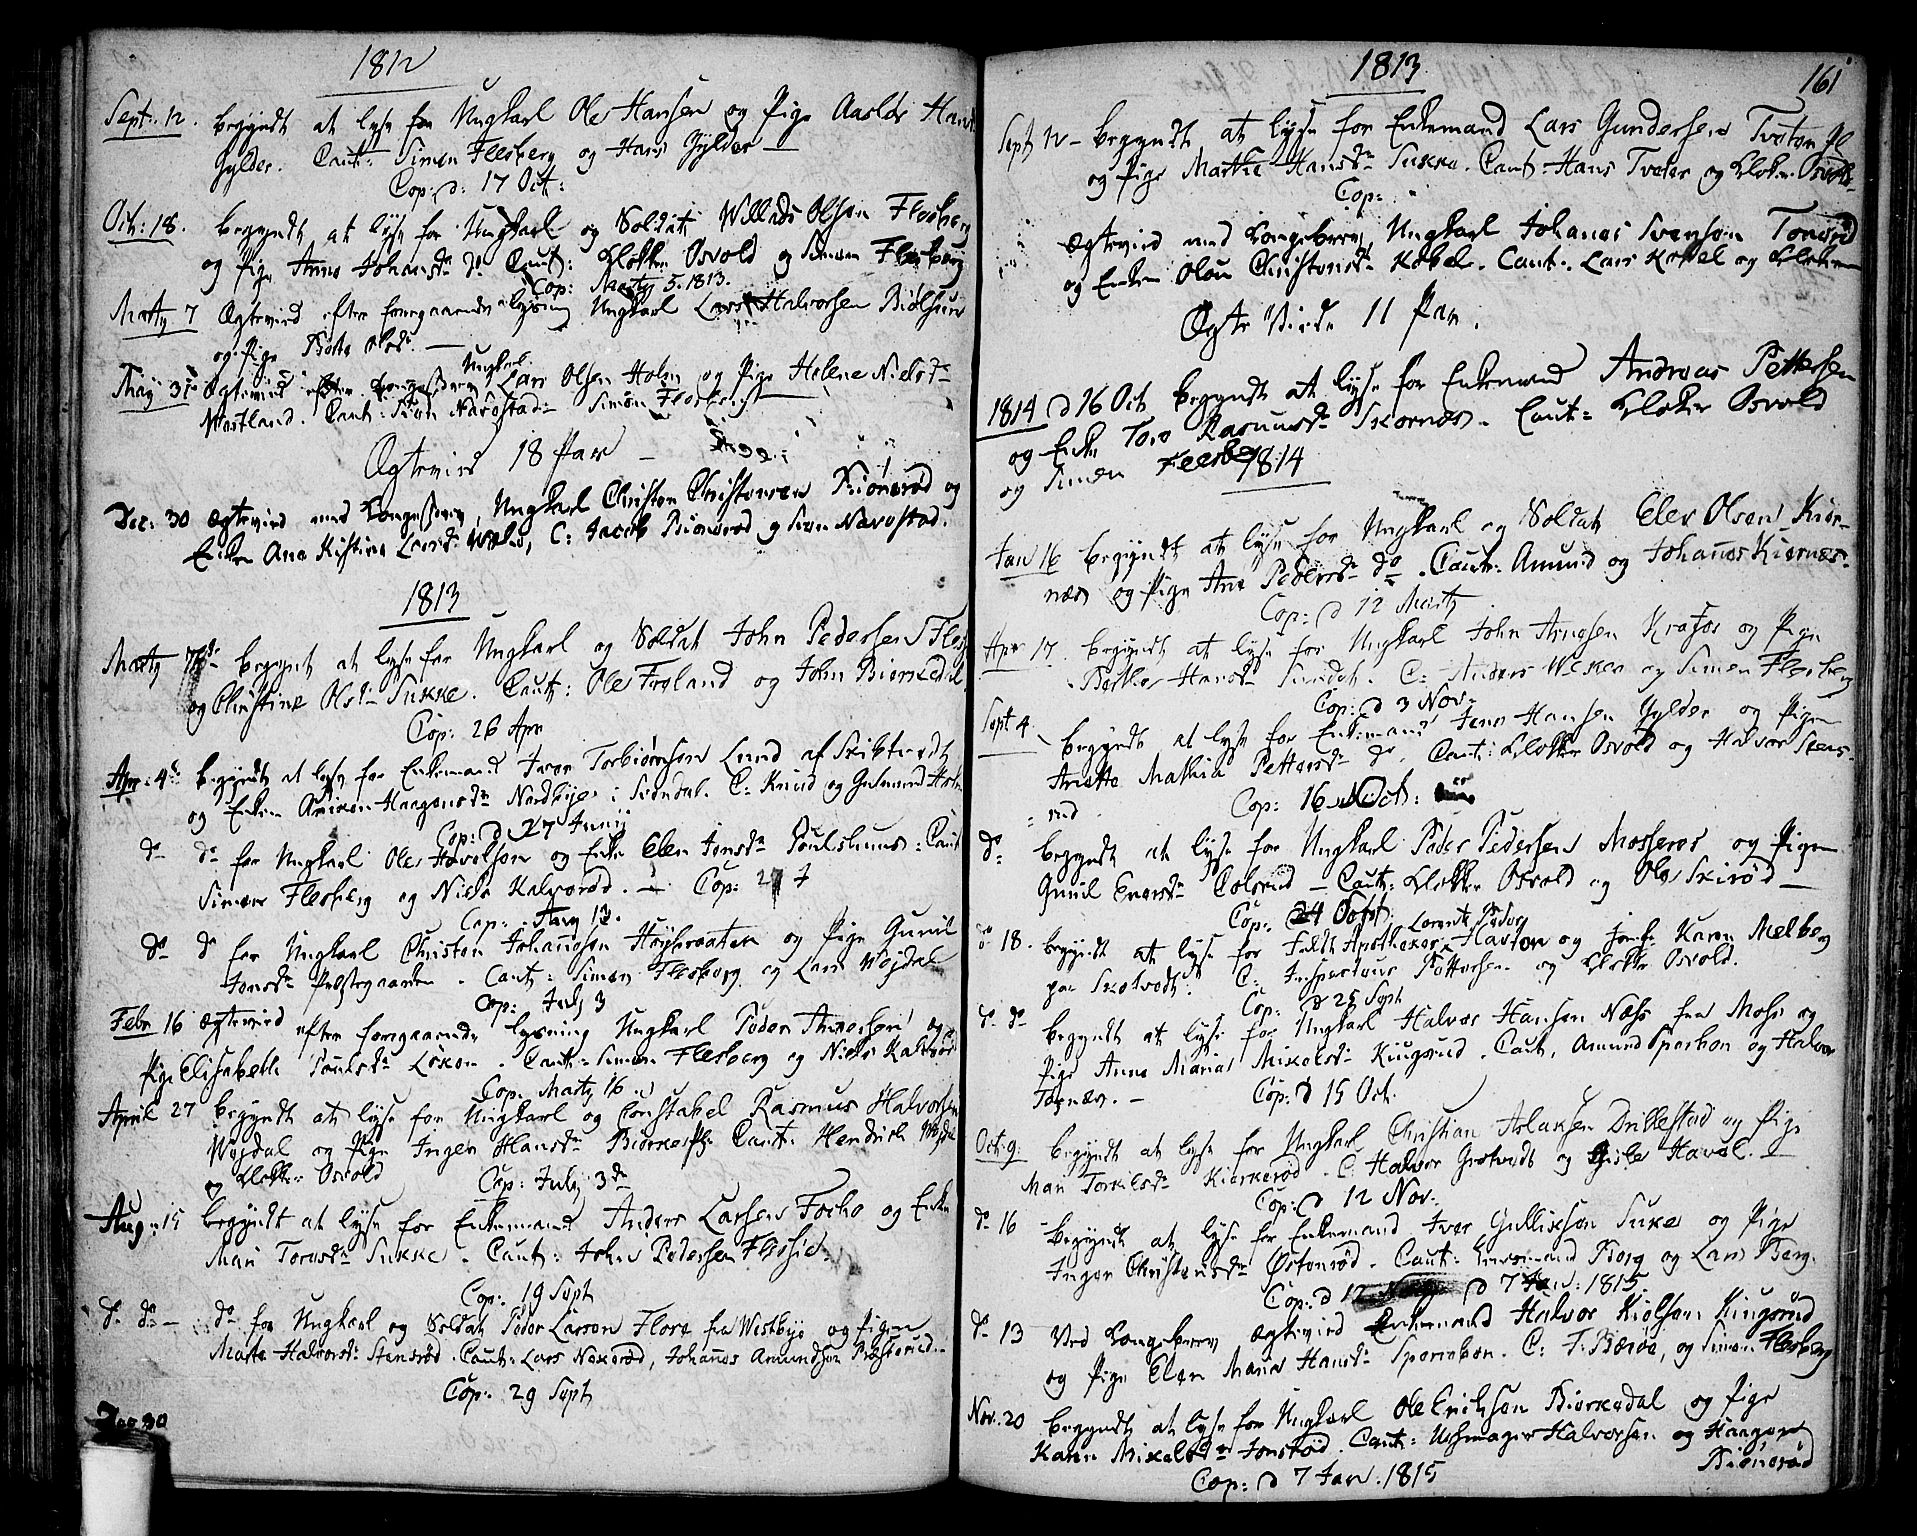 1812
Sept: 12. begyndt at lyse for Ungkarl Ole Hansen og Pige Aaslov Hans
Gylder. Caut: Simen Flesberg og Hans Gylder —
Cop: d: 17 Oct:
Oct: 18. begyndt at lyse for Ungkarl og Soldat Willads Olsen Flesberg
og Pige Anne Johansdr do Caut: Klokker Osvold og Simen Flesberg
Cop: Marty 5. 1813.
Marty 7 Ægteviid efter foregaaende lysning Ungkarl Lars Halvorsen
og Pige Olsdr. —
Ungkarl
May 31 Ægteviid Lars Olsen Holm og Pige Helene Nielsdr
Westland. Caut: Navestad Simen Flesberg
Ægteviid 18 Par —
Dec: 30 Ægteviid med Kongebrev, Ungkarl Christen Christensen og
Enken Ana Kistina Larsdr C: Jacob og Navestad.
1813
Marty begynt at lyse for Ungkarl og Soldat John Pedersen
og Christine Olsdr Sukke. Caut: Ole Froland og John Biørkedal
Cop: 26 Apr
Apr: 4de begyndt at lyse for Enkemand Iver Torbiørnsen Lund af Skibtvedt
og Enken Haagensdr Nordbye i C: Knud og Gulmand
Cop: d 27 Junij
do do for Ungkarl Ole og Enke Elen Jensdr Poulshuus: Caut
Simen Flesberg og Niels Kalverød. — Cop: 27 J
Cop:
do d for Ungkarl Christen Johannesen Høybraaten og Pige Gunil
Jensdr Præstegaarden. Caut: Simen Flesberg og Lars Wejdal
Cop: July 3
Febr 16 Ægteviid efter foregaaende lysning Ungkarl Peder og
Pige Elisabeth Poulsdr Løken. Caut: Simen Flesberg og Niels Kalverød
Cop: Marty 16
April 27 begyndt at lyse for Ungkarl og Constabel Rasmus Halvorsen
Wejdal og Pige Ingen Hansdr Caut: Hendrich Wejdal
og Klokker Osvold Cop: July 3de
Aug: 15 begyndt at lyse for Enkemand Anders Larsen og Enke
Mari Toresdr Sukke. Caut: John Pedersen
Cop: 19 Sept
do do — do for Ungkarl og Soldat Peder Larsen Flore fra Westbye og Pigen
Marte Halvorsdr Stensrød. Caut: Lars Naxerød, Johanes Amundsen
Cop: 29 Sept
30
1813
161
Sept 12 — begyndt at lyse for Enkemand Lars Gundersen Tveten
og Pige Marthe Hansdr Sukke. Caut: Hans Tveter og Klokker Osvold
Cop:
Ægteviid med Kongebrev, Ungkarl Johanes Svensen
og Enken Oleu Christensdr Kobel. Caut: Lars Kobel og Klokker
Ægte Viede 11 Par.
1814 d 16 Oct begyndt at lyse for Enkemand Andreas Pettersen
og Enke Tore Rasmusdr Skornæs. Caut: Klokker Osvold
og Simen Flesberg
1814
Jan 16 begyndt at lyse for Ungkarl og Soldat Elev Olsen Kior-
næs og Pige Ane Pedersdr do. Caut: Amund og Johanes Kiornæs.
Cop: d 12 Marty
Apr 17. begyndt at lyse for Ungkarl John Arngsen Krafos og Pige
Berthe Hansdr Sundet. C: Anders Weker og Simen Flesberg
Cop: d 3 Nov.
Sept 4. begyndt at lyse for Enkemand Jens Hansen Gylder og Pigen
Anette Mathia Pettersdr do. Caut: Klokker Osvold og Halvor Stens-
rud. Cop: 16 Oct:
do begyndt at lyse for Ungkarl Peder Pedersen Mosserøs og Pigen
Gunil Enersdr — Caut: Klokker Osvold og Ole Skirød —
Cop: 24 Sept:
do 18. begyndt at lyse for Feldt Apotheker Lorentz Peder og Jomfr Karen Melberg
paa Skotvedt. C: Inspecteur Pettersen og Klokker Osvold.
Cop: d 25 Sept
do do begyndt at lyse for Ungkarl Halvor Hansen Næss fra Moss og
Pige Anne Maria Mikelsdr Kingsrud. Caut, Amund Sperbon og Halvor
— Cop: d 15 Oct.
Oct: 9. begyndt at lyse for Ungkarl Christian Aslaksen Dillestad og Pige
Mari Torkilsdr Kierkerød. C: Halvor Grotvedt og Gisle Haval. —
Cop: d 12 Nov:
do 16 begyndt at lyse for Enkemand Iver Gullixsen Suke og Pige
Inger Christensdr Østenrød. Caut: Borg og Lars Berg.
Cop: d d 7 Jan: 1815
do 13 Ved Kongebrev Ægteviid Enkemand Halvor Kielsen Kingsrud
og Pige Elen Maria Hansdr Sperrebon. C: J. Bærøe, og Simen Flesberg
Nov. 20 begyndt at lyse for Ungkarl Ole Eriksen Biørkedal og Pige
Karen Mikelsdr Jonsrød. Caut: Uhrmager Halvorsen og Haagen
Biønerød
Cop: d 7 Jan. 1815